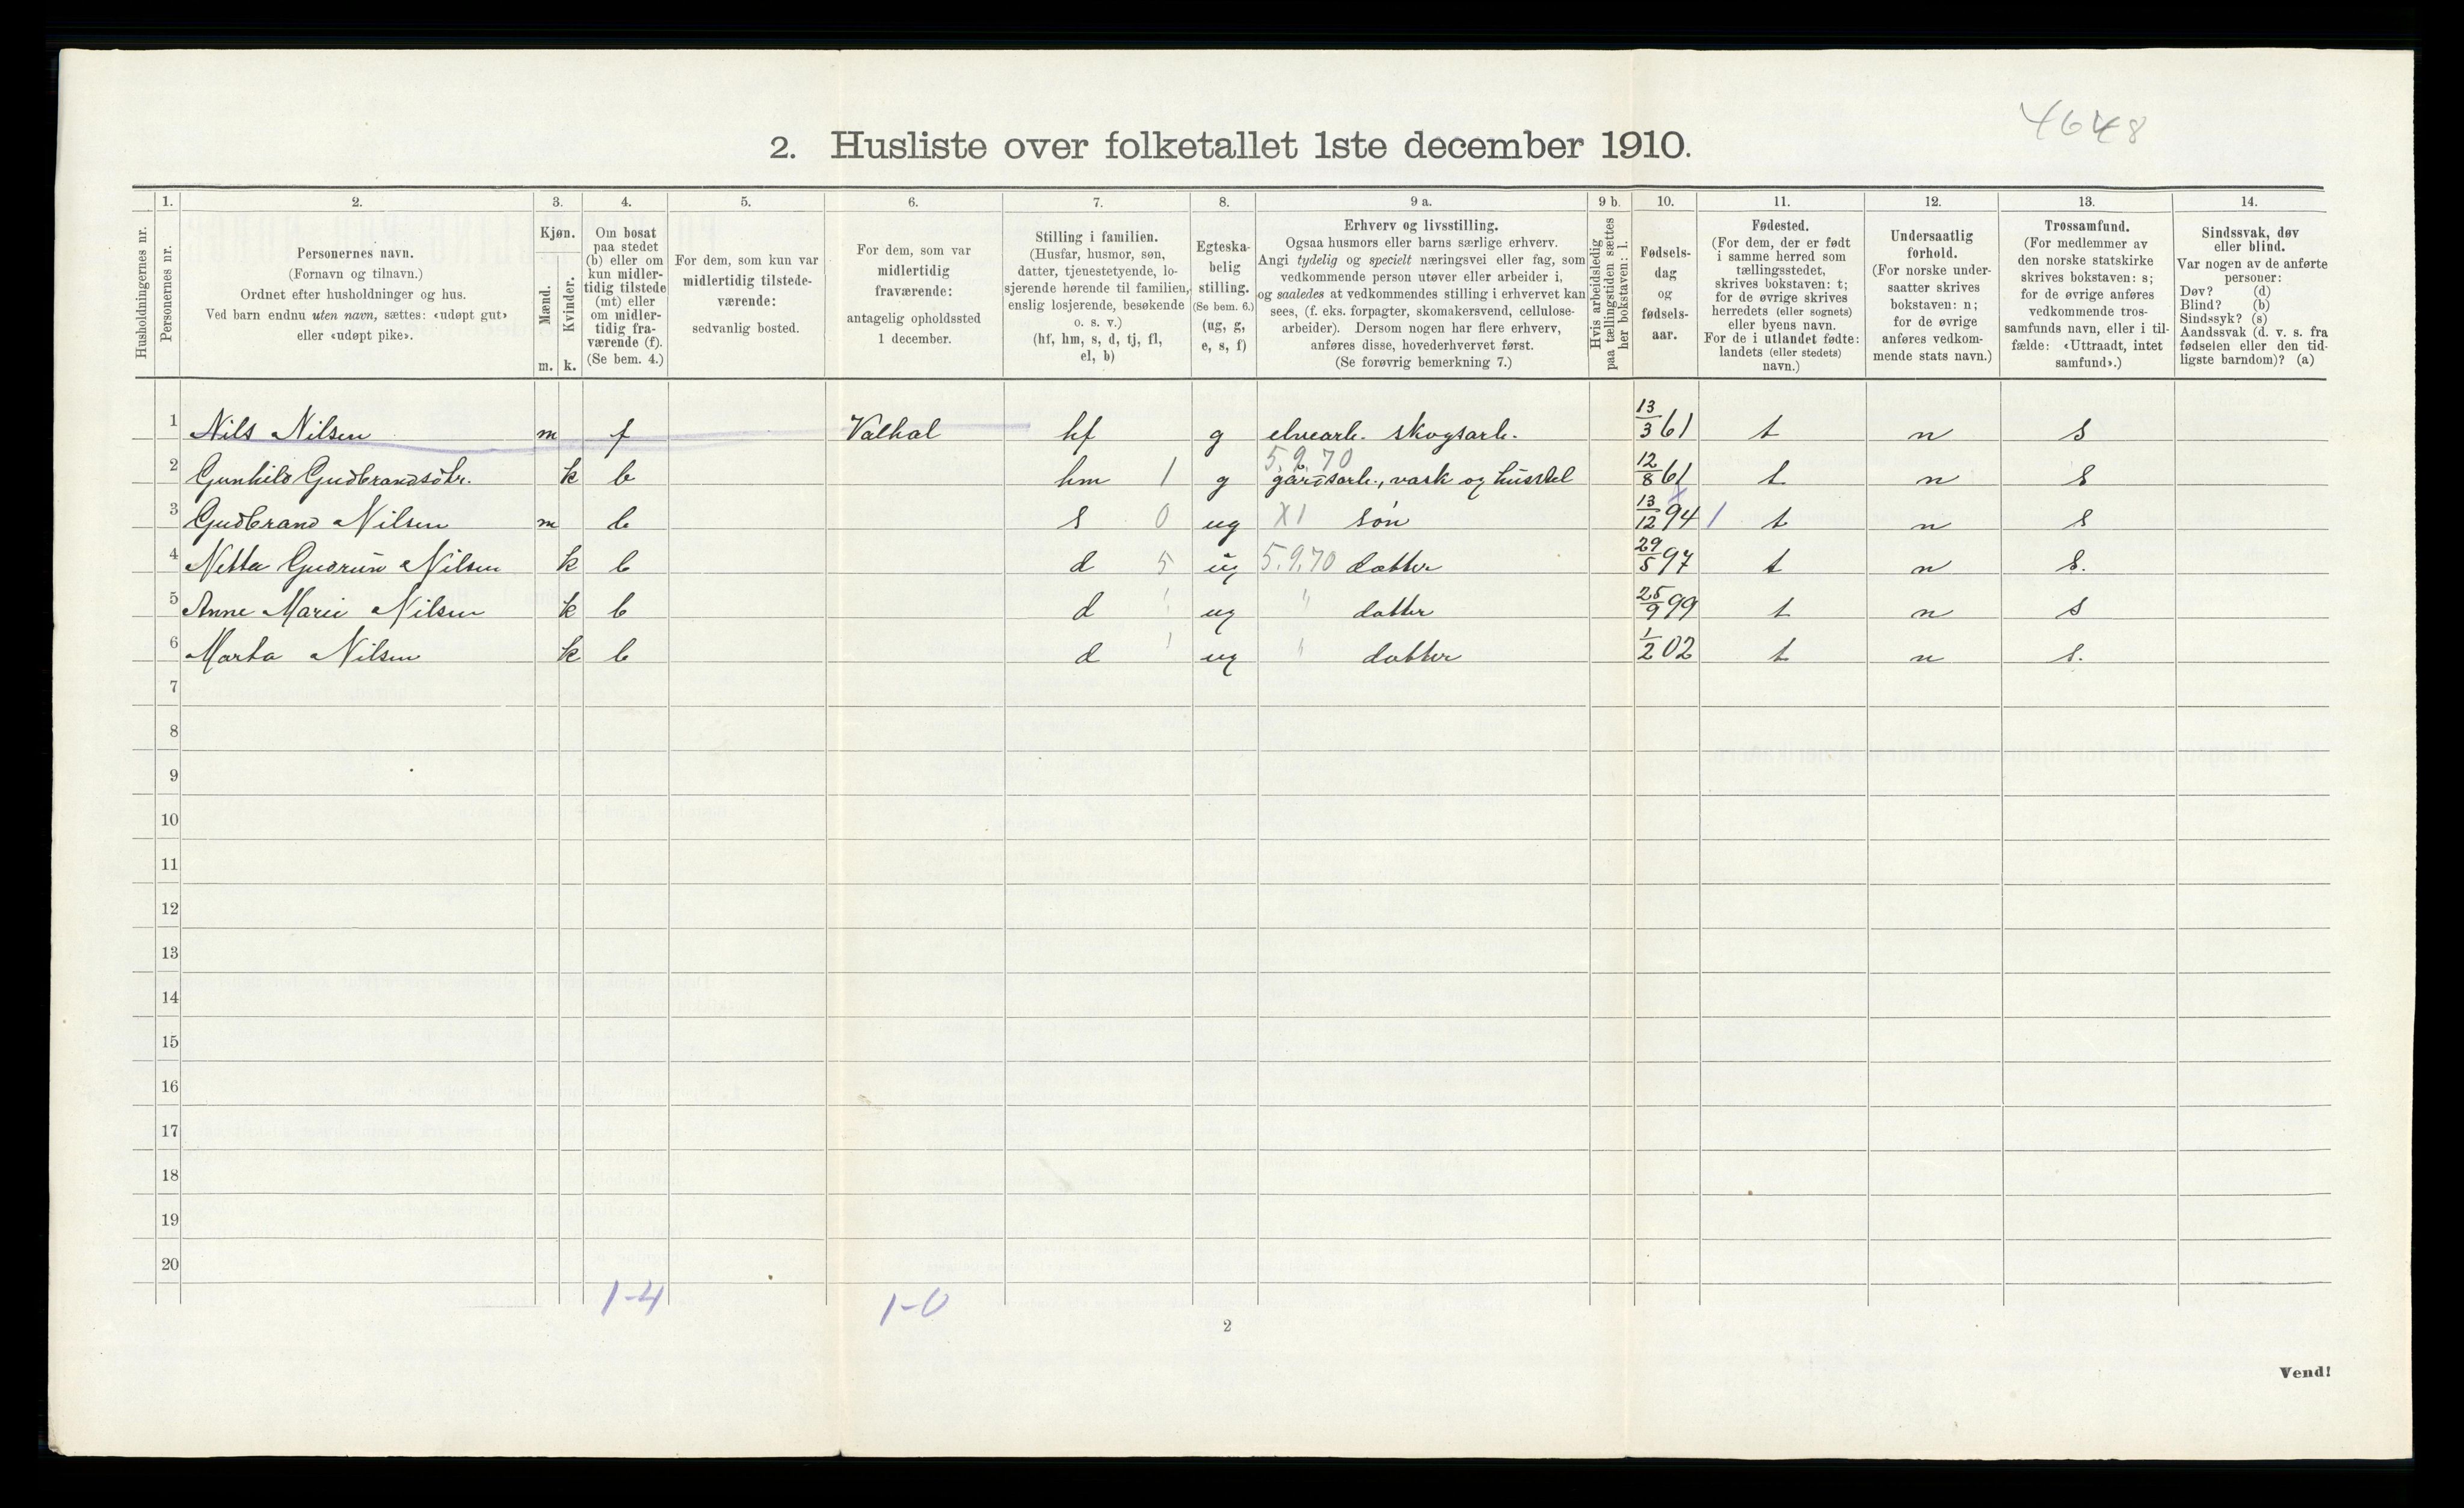 4648
2. Husliste over folketallet 1ste december 1910.
Husholdningernes nr.
1.
Personernes nr.
2.
Personernes navn.
(Fornavn og tilnavn.)
Ordnet efter husholdninger og hus.
Ved barn endnu uten navn, sættes: «udøpt gut»
eller «udøpt pike».
3.
Kjøn.
Mænd.
Kvinder.
m. k.
4.
Om bosat
paa stedet
(b) eller om
kun midler-
tidig tilstede
(mt) eller
om midler-
tidig fra-
værende (f).
(Se bem. 4.)
5.
For dem, som kun var
midlertidig tilstede-
værende:
sedvanlig bosted.
6.
For dem, som var
midlertidig
fraværende:
antagelig opholdssted
1 december.
7.
Stilling i familien.
(Husfar, husmor, søn,
datter, tjenestetyende, lo-
sjerende hørende til familien,
enslig losjerende, besøkende
o. s. v.)
(hf, hm, s, d, tj, fl,
el, b)
8.
Egteska-
belig
stilling.
(Se bem. 6.)
(ug, g,
e, s, f)
9 a.
Erhverv og livsstilling.
Ogsaa husmors eller barns særlige erhverv.
Angi tydelig og specielt næringsvei eller fag, som
vedkommende person utøver eller arbeider i,
og saaledes at vedkommendes stilling i erhvervet kan
sees, (f. eks. forpagter, skomakersvend, cellulose-
arbeider). Dersom nogen har flere erhverv,
anføres disse, hovederhvervet først.
(Se forøvrig bemerkning 7.)
9 b.
Hvis arbeidsledig
paa tællingstiden sættes
her bokstaven: l.
10.
Fødsels-
dag
og
fødsels-
aar.
11.
Fødested.
(For dem, der er født
i samme herred som
tællingsstedet,
skrives bokstaven: t;
for de øvrige skrives
herredets (eller sognets)
eller byens navn.
For de i utlandet fødte:
landets (eller stedets)
navn.)
12.
Undersaatlig
forhold.
(For norske under-
saatter skrives
bokstaven: n;
for de øvrige
anføres vedkom-
mende stats navn.)
13.
Trossamfund.
(For medlemmer av
den norske statskirke
skrives bokstaven: s;
for de øvrige anføres
vedkommende tros-
samfunds navn, eller i til-
fælde: «Uttraadt, intet
samfund».)
14.
Sindssvak, døv
eller blind.
Var nogen av de anførte
personer:
Døv? (d)
Blind? (b)
Sindssyk? (s)
Aandssvak (d. v. s. fra
fødselen eller den tid-
ligste barndom)? (a)
1 Nils Nilsen m f Valhal hf g elvearb. skogsarb. 13/3 61 t n s
5.9.70
2 Gunhild Gudbrandsdtr. k b hm 1 g gårdsarb., vask og husstel 12/8 61 t n s
3 Gudbrand Nilsen m b s 0 ug X1 søn 13/12 94 1 t n s
4 Netta Gudrun Nilsen k b d 5 ug 5.9.70 datter 29/5 97 t n s.
5 Anne Marie Nilsen k b d ug " datter 25/9 99 t n s
6 Marta Nilsen k b d ug " datter 1/2 02 t n s.
7
8
9
10
11
12
13
14
15
16
17
18
19
20
1-4 1-0
2
Vend!